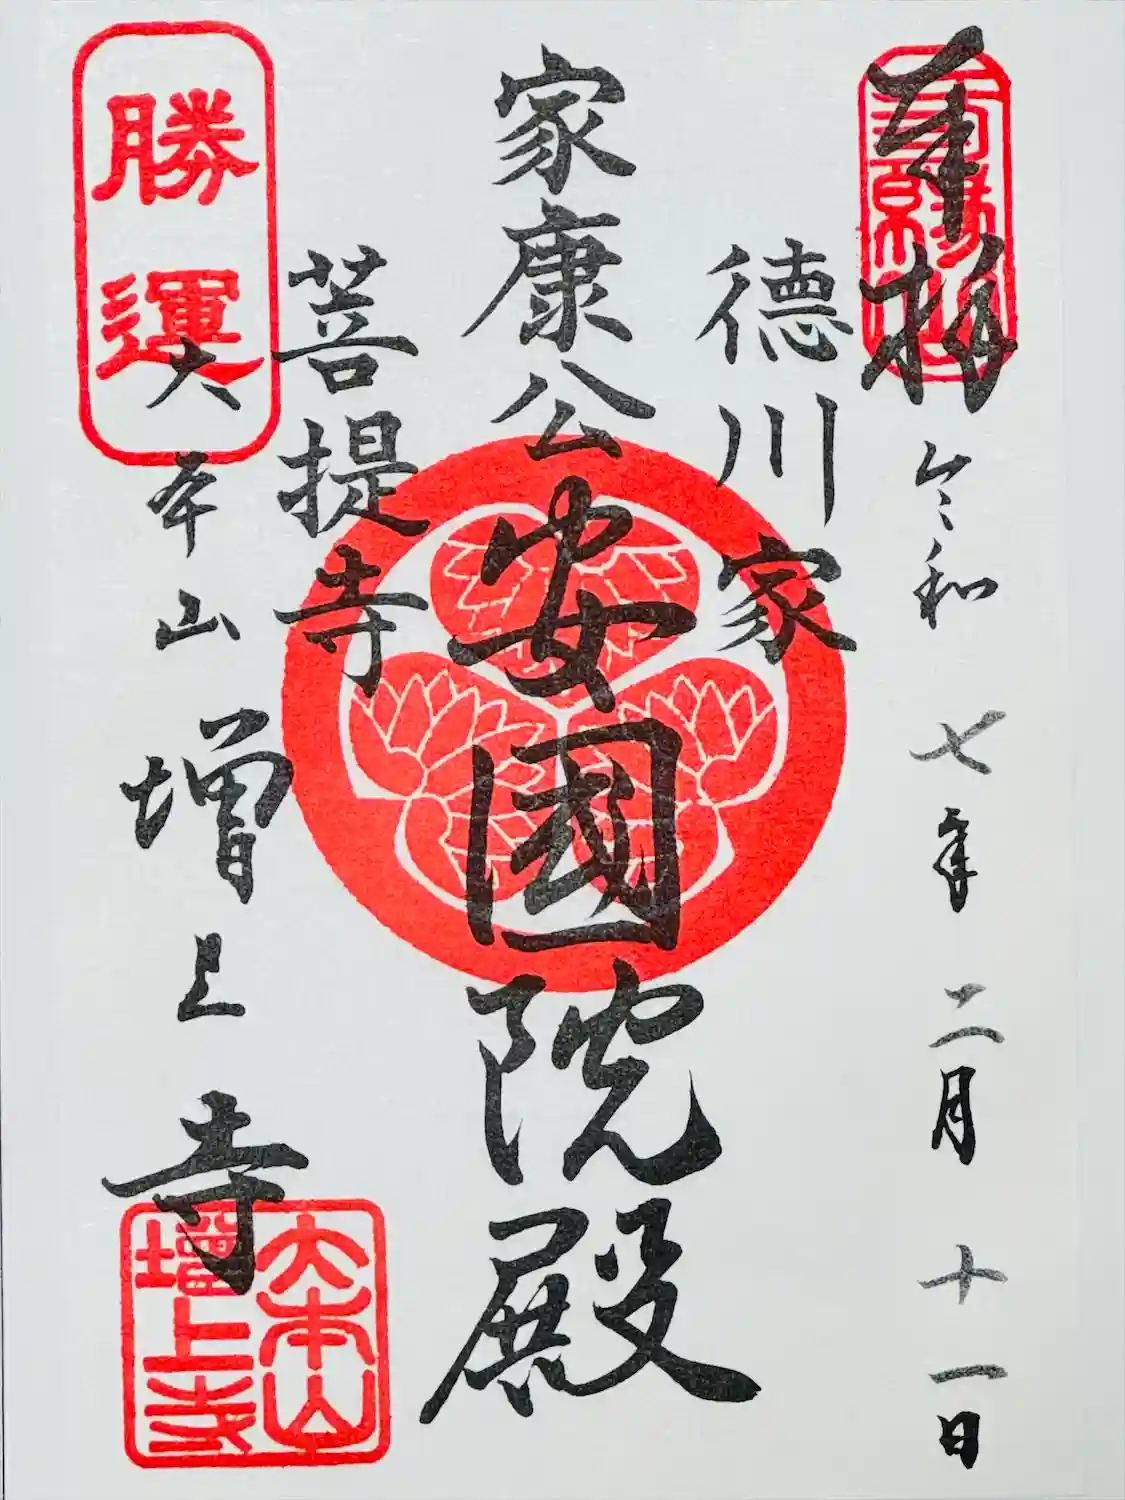 奉拝
令和七年二月十一日
徳川家
家康公
安國院殿
菩提寺
勝運
大本山増上寺
大本山
増上寺